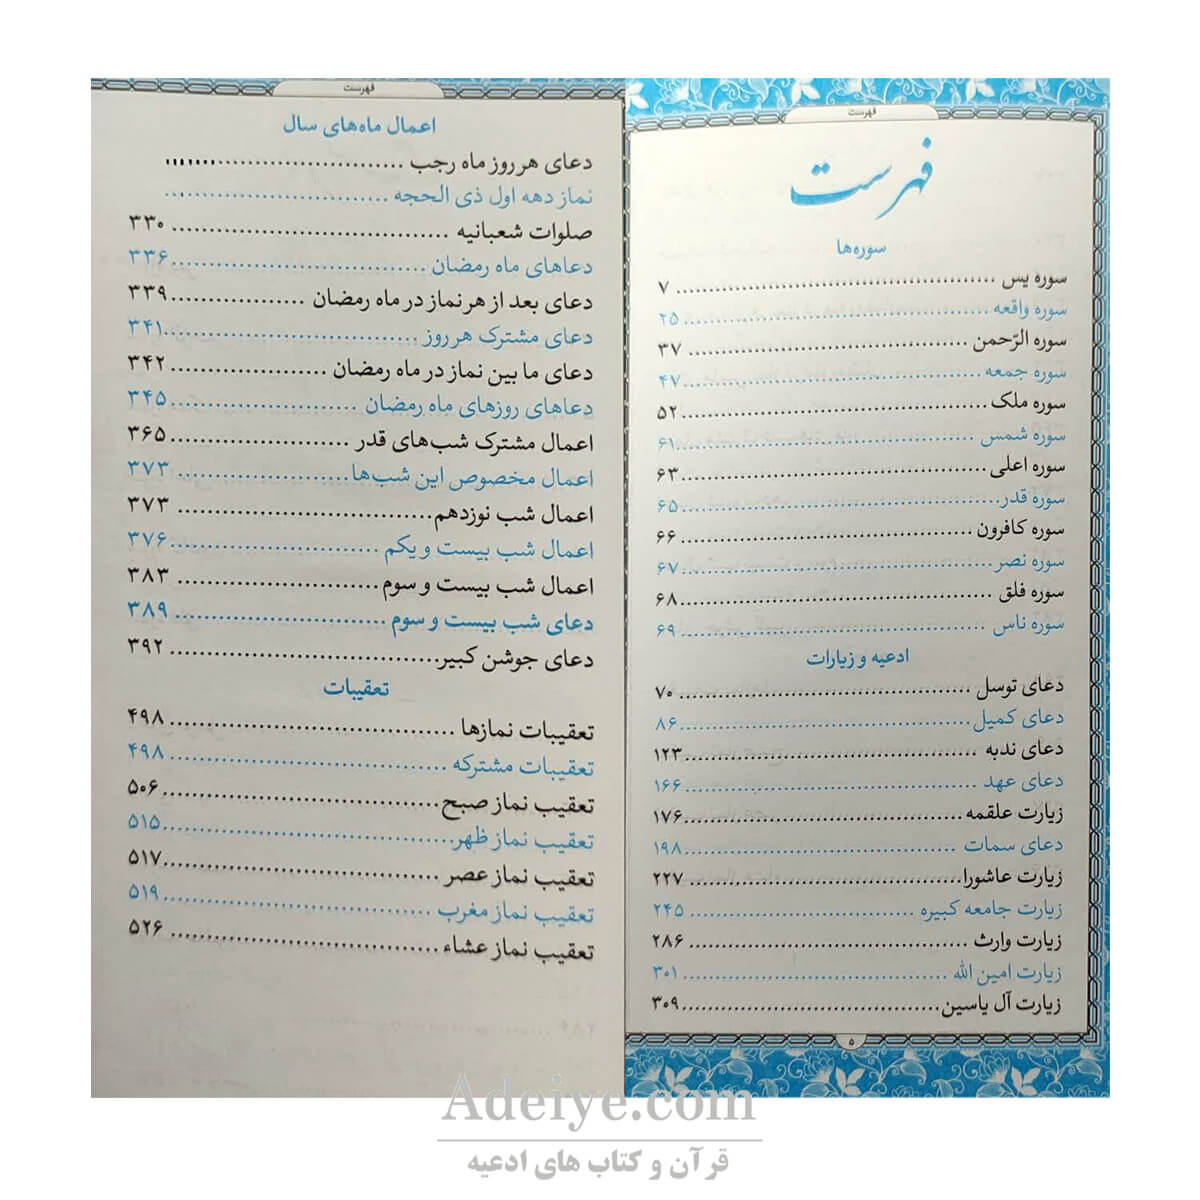 فهرست
فهرست
سوره‌ها
سوره یس ........ ۷
سوره واقعه ........ ۲۵
سوره الرّحمن ........ ۳۷
سوره جمعه ........ ۴۷
سوره ملک ........ ۵۲
سوره شمس ........ ۶۱
سوره اعلی ........ ۶۳
سوره قدر ........ ۶۵
سوره کافرون ........ ۶۶
سوره نصر ........ ۶۷
سوره فلق ........ ۶۸
سوره ناس ........ ۶۹
ادعیه و زیارات
دعای توسل ........ ۷۰
دعای کمیل ........ ۸۶
دعای ندبه ........ ۱۲۳
دعای عهد ........ ۱۶۶
زیارت علقمه ........ ۱۷۶
دعای سمات ........ ۱۹۸
زیارت عاشورا ........ ۲۲۷
زیارت جامعه کبیره ........ ۲۴۵
زیارت وارث ........ ۲۸۶
زیارت امین الله ........ ۳۰۱
زیارت آل یاسین ........ ۳۰۹
۵
فهرست
اعمال ماه‌های سال
دعای هر روز ماه رجب ........
نماز دهه اول ذی الحجه ........
صلوات شعبانیه ........ ۳۳۰
دعاهای ماه رمضان ........ ۳۳۶
دعای بعد از هر نماز در ماه رمضان ........ ۳۳۹
دعای مشترک هر روز ........ ۳۴۱
دعای ما بین نماز در ماه رمضان ........ ۳۴۲
دعاهای روزهای ماه رمضان ........ ۳۴۵
اعمال مشترک شب‌های قدر ........ ۳۶۵
اعمال مخصوص این شب‌ها ........ ۳۷۳
اعمال شب نوزدهم ........ ۳۷۳
اعمال شب بیست و یکم ........ ۳۷۶
اعمال شب بیست و سوم ........ ۳۸۳
دعای شب بیست و سوم ........ ۳۸۹
دعای جوشن کبیر ........ ۳۹۲
تعقیبات
تعقیبات نمازها ........ ۴۹۸
تعقیبات مشترکه ........ ۴۹۸
تعقیب نماز صبح ........ ۵۰۶
تعقیب نماز ظهر ........ ۵۱۵
تعقیب نماز عصر ........ ۵۱۷
تعقیب نماز مغرب ........ ۵۱۹
تعقیب نماز عشاء ........ ۵۲۶
Adeiye.com
قرآن و کتاب های ادعیه